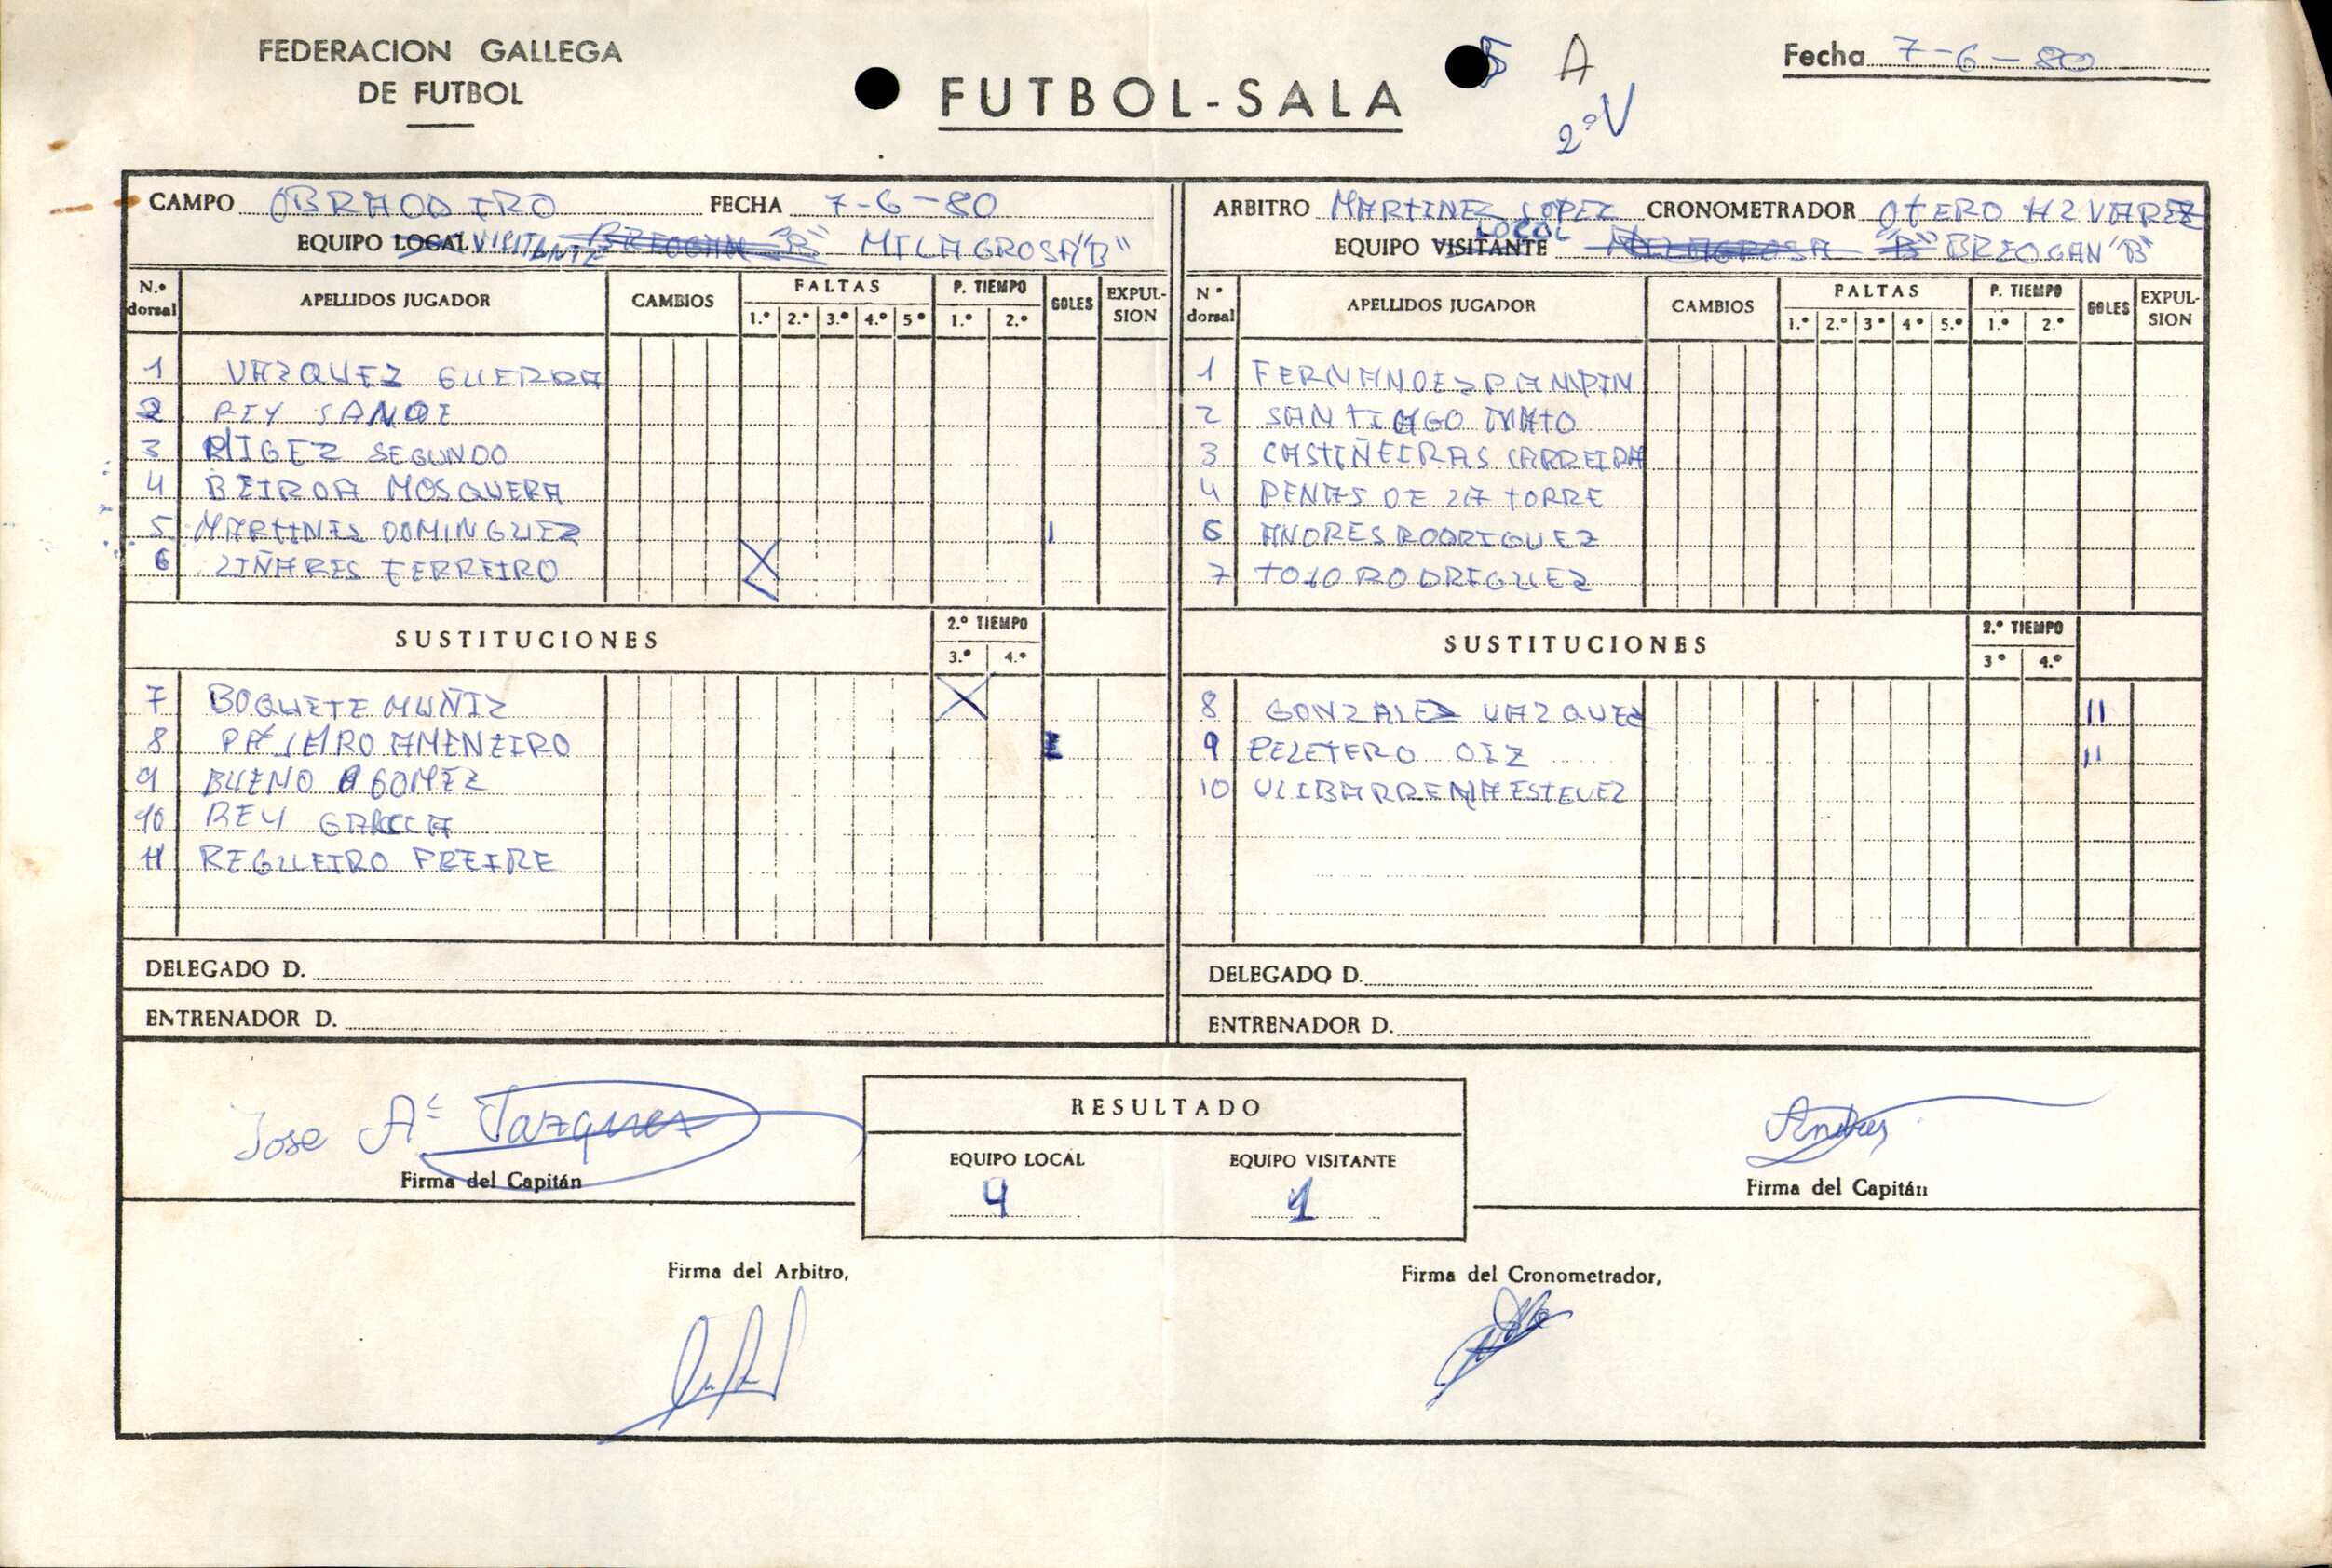 FEDERACION GALLEGA
DE FUTBOL
FUTBOL-SALA
A
2ª V
Fecha 7-6-80
CAMPO OBRADOIRO FECHA 7-6-80
EQUIPO LOCAL VISITANTE BREOGAN "B" MILAGROSA "B"
ARBITRO MARTINEZ LOPEZ CRONOMETRADOR OTERO ALVAREZ
EQUIPO VISITANTE LOCAL MILAGROSA "B" BREOGAN "B"
N.º dorsal APELLIDOS JUGADOR CAMBIOS FALTAS P. TIEMPO GOLES EXPULSION
1.º 2.º 3.º 4.º 5º 1.º 2.º
1 VAZQUEZ GUERRA
2 REY SANDE
3 MIGEZ SEGUNDO
4 BEIROA MOSQUERA
5 MARTINEZ DOMINGUEZ I
6 LIÑARES FERREIRO X
SUSTITUCIONES 2.º TIEMPO
3.º 4.º
7 BOQUETE MUÑIZ X
8 PAJARO AMENEIRO
9 BUENO GOMEZ
10 REY GARCIA
11 REGUEIRO FREIRE
DELEGADO D.
ENTRENADOR D.
Nº dorsal APELLIDOS JUGADOR CAMBIOS FALTAS P. TIEMPO GOLES EXPULSION
1.º 2.º 3º 4º 5.º 1.º 2.º
1 FERNANDES PAMPIN
2 SANTIAGO MATO
3 CASTIÑEIRAS CARREIRA
4 PENAS DE LA TORRE
6 ANDRES RODRIGUEZ
7 TOJO RODRIGUEZ
SUSTITUCIONES 2.º TIEMPO
3º 4.º
8 GONZALEZ VAZQUEZ II
9 PELETERO DIZ II
10 ULIBARRENA ESTEVEZ
DELEGADO D.
ENTRENADOR D.
Jose Aº Vazquez
Firma del Capitán
RESULTADO
EQUIPO LOCAL EQUIPO VISITANTE
4 1
Andres
Firma del Capitán
Firma del Arbitro,
Firma del Cronometrador,